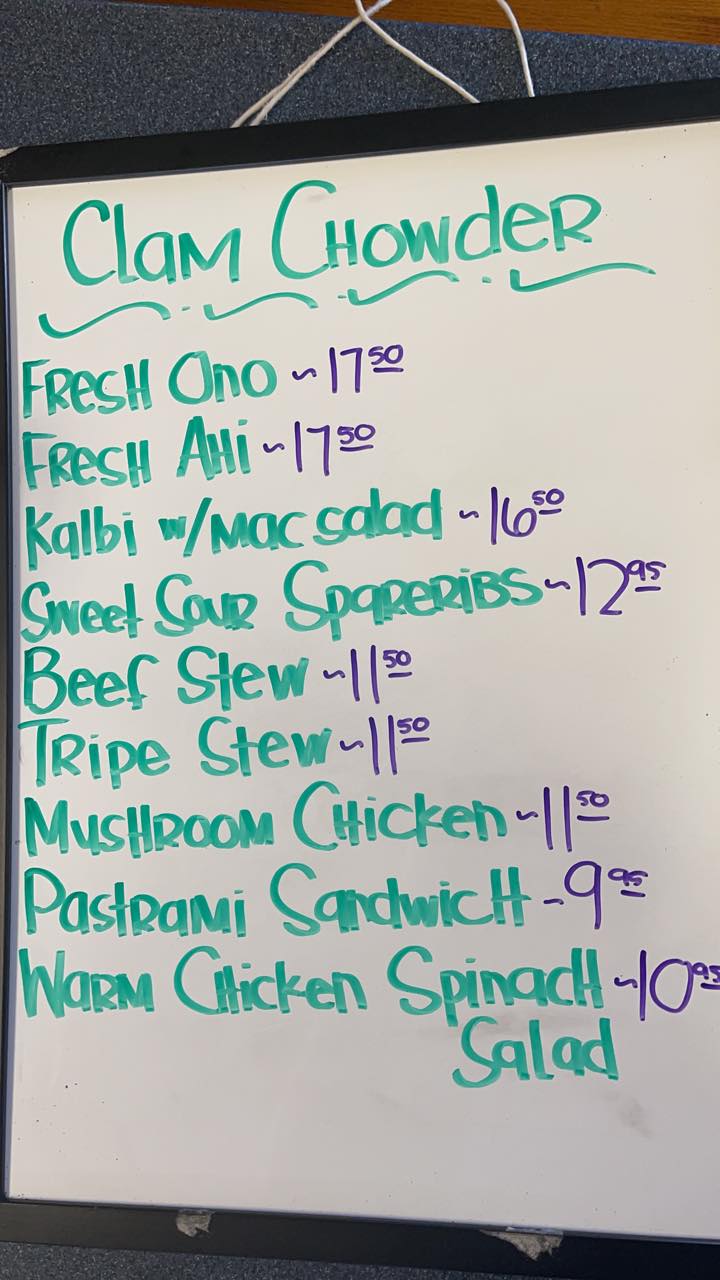 Clam Chowder
Fresh Ono ~ 17 50
Fresh Ahi ~ 17 50
Kalbi w/Mac salad ~ 16 50
Sweet Sour Spareribs ~ 12 95
Beef Stew ~ 11 50
Tripe Stew ~ 11 50
Mushroom Chicken ~ 11 50
Pastrami Sandwich - 9 95
Warm Chicken Spinach ~ 10 95
Salad